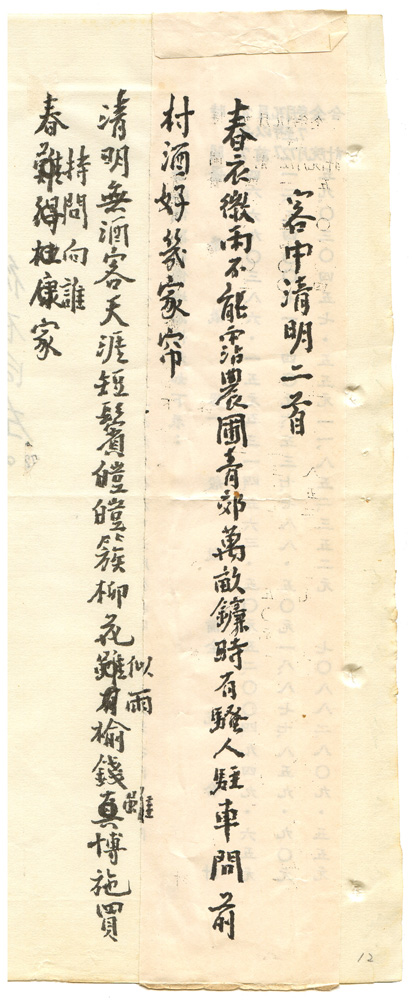 客中清明二首
春衣微雨不能霑農圃青郊萬畝鐮時有騷人駐車問前
村酒好幾家帘
似雨
雖
清明無酒客天涯短鬢皚皚簇柳花雖有榆錢真博施買
持問向誰
春難得杜康家
12